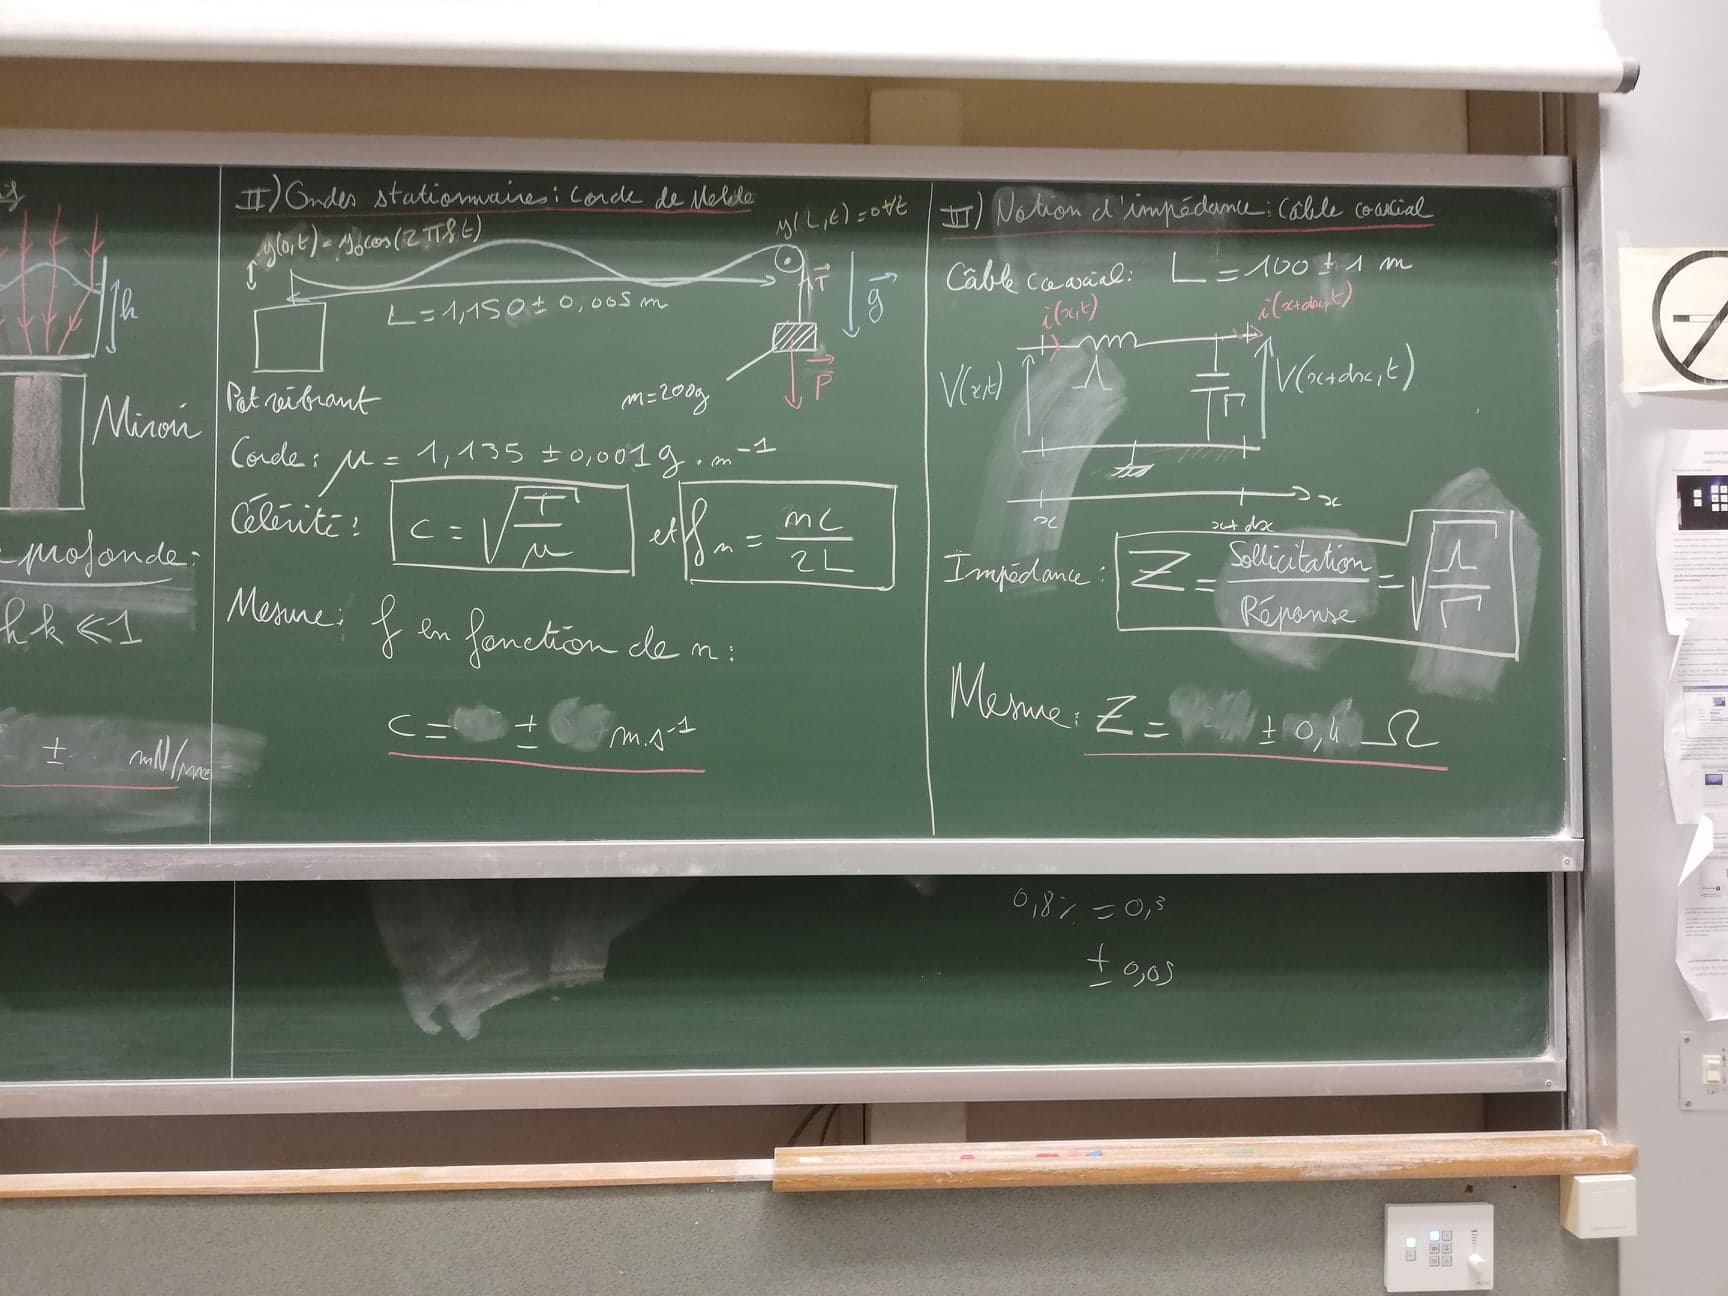 h
Miroir
profonde:
hk ≪ 1
± mN/m
II) Ondes stationnaires: Corde de Melde
y(0,t) = y₀cos(2πft)
y(L,t)=0 ∀t
L = 1,150 ± 0,005 m
T
g
P
m=200g
Pot vibrant
Corde: μ = 1,135 ± 0,001 g.m⁻¹
Célérité: c = √(T/μ) et fn = nc/2L
Mesure: f en fonction de n:
c = ± m.s⁻¹
III) Notion d'impédance: Câble coaxial
Câble coaxial: L = 100 ± 1 m
i(x,t)
i(x+dx,t)
V(x,t)
Λ
Γ
V(x+dx,t)
x
x+dx
x
Impédance: Z = Sollicitation/Réponse = √(Λ/Γ)
Mesure: Z = ± 0,4 Ω
0,8% = 0,3
± 0,05